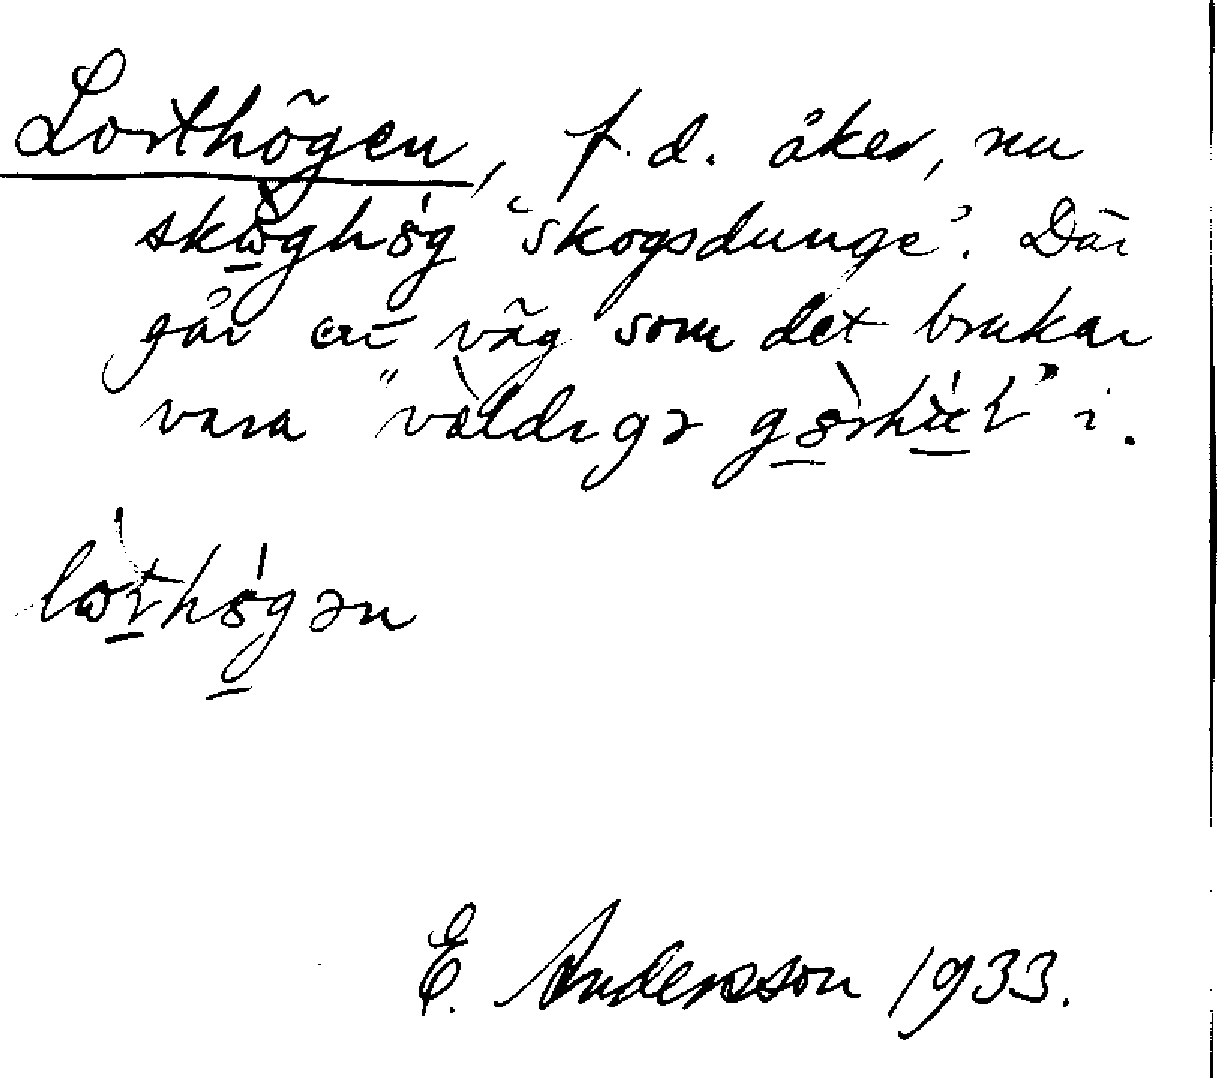 Lorthögen, f.d. åker, nu
skωghög 'skogsdunge'. Där
går en väg som det brukar
vara "väldigə görhält" i.
lωrthögən
E. Andersson 1933.